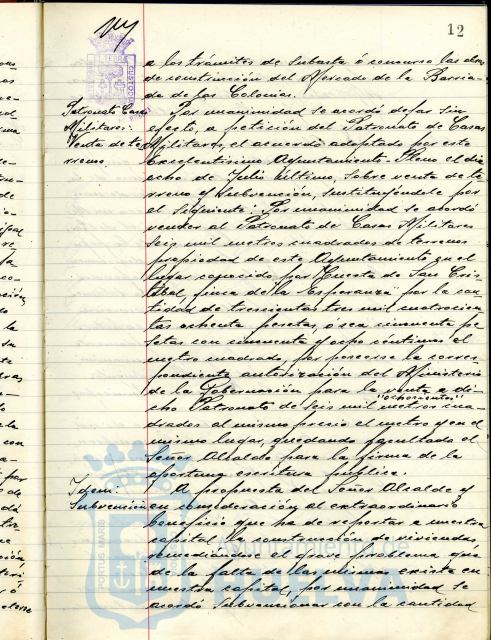 12
a los trámites de subasta ó concurso las obras
de construcción del Mercado de la Barria-
da de las Colonias.
Patronato Casas
Militares:
Venta de te
rreno.
Por unanimidad se acordó dejar sin
efecto, a petición del Patronato de Casas
Militares, el acuerdo adoptado por este
Excelentísimo Ayuntamiento Pleno el dia
ocho de Julio último, sobre venta de te
rreno y subvención, sustituyéndole por
el siguiente: Por unanimidad se acordó
vender al Patronato de Casas Militares
seis mil metros cuadrados de terrenos
propiedad de este Ayuntamiento en el
lugar conocido por "Cuesta de San Cris
tóbal, finca de la Esperanza" por la can
tidad de trescientas tres mil cuatrocien
tas ochenta pesetas, o sea cincuenta pe
setas con cincuenta y ocho céntimos el
metro cuadrado, por poseerse la corres
pondiente autorización del Ministerio
de la Gobernación para la venta a di
cho Patronato de seis mil "ochocientos" metros cua
drados al mismo precio el metro y en el
mismo lugar, quedando facultado el
Señor Alcalde para la firma de la
oportuna escritura pública.
Idem:
Subvención
A propuesta del Señor Alcalde y
en consideración al extraordinario
beneficio que ha de reportar a nuestra
capital la construcción de viviendas,
remediando el grave problema que
de la falta de las mismas existe en
nuestra capital, por unanimidad se
acordó subvencionar con la cantidad
Ayuntamiento de
HUELVA
PORTUS MARIS
CUSTODIA